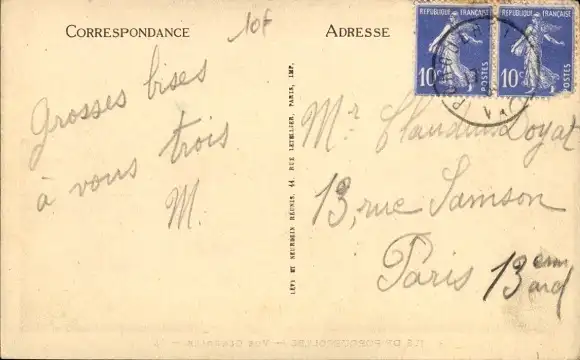 CORRESPONDANCE
10f
ADRESSE
REPUBLIQUE FRANÇAISE
10c POSTES
REPUBLIQUE FRANÇAISE
10c POSTES
VAR
Grosses bises
à vous trois
M.
LEVY ET NEURDEIN RÉUNIS, 44, RUE LETELLIER, PARIS, IMP.
Mr Claudius Doyat
13, rue Samson
Paris 13em
ard